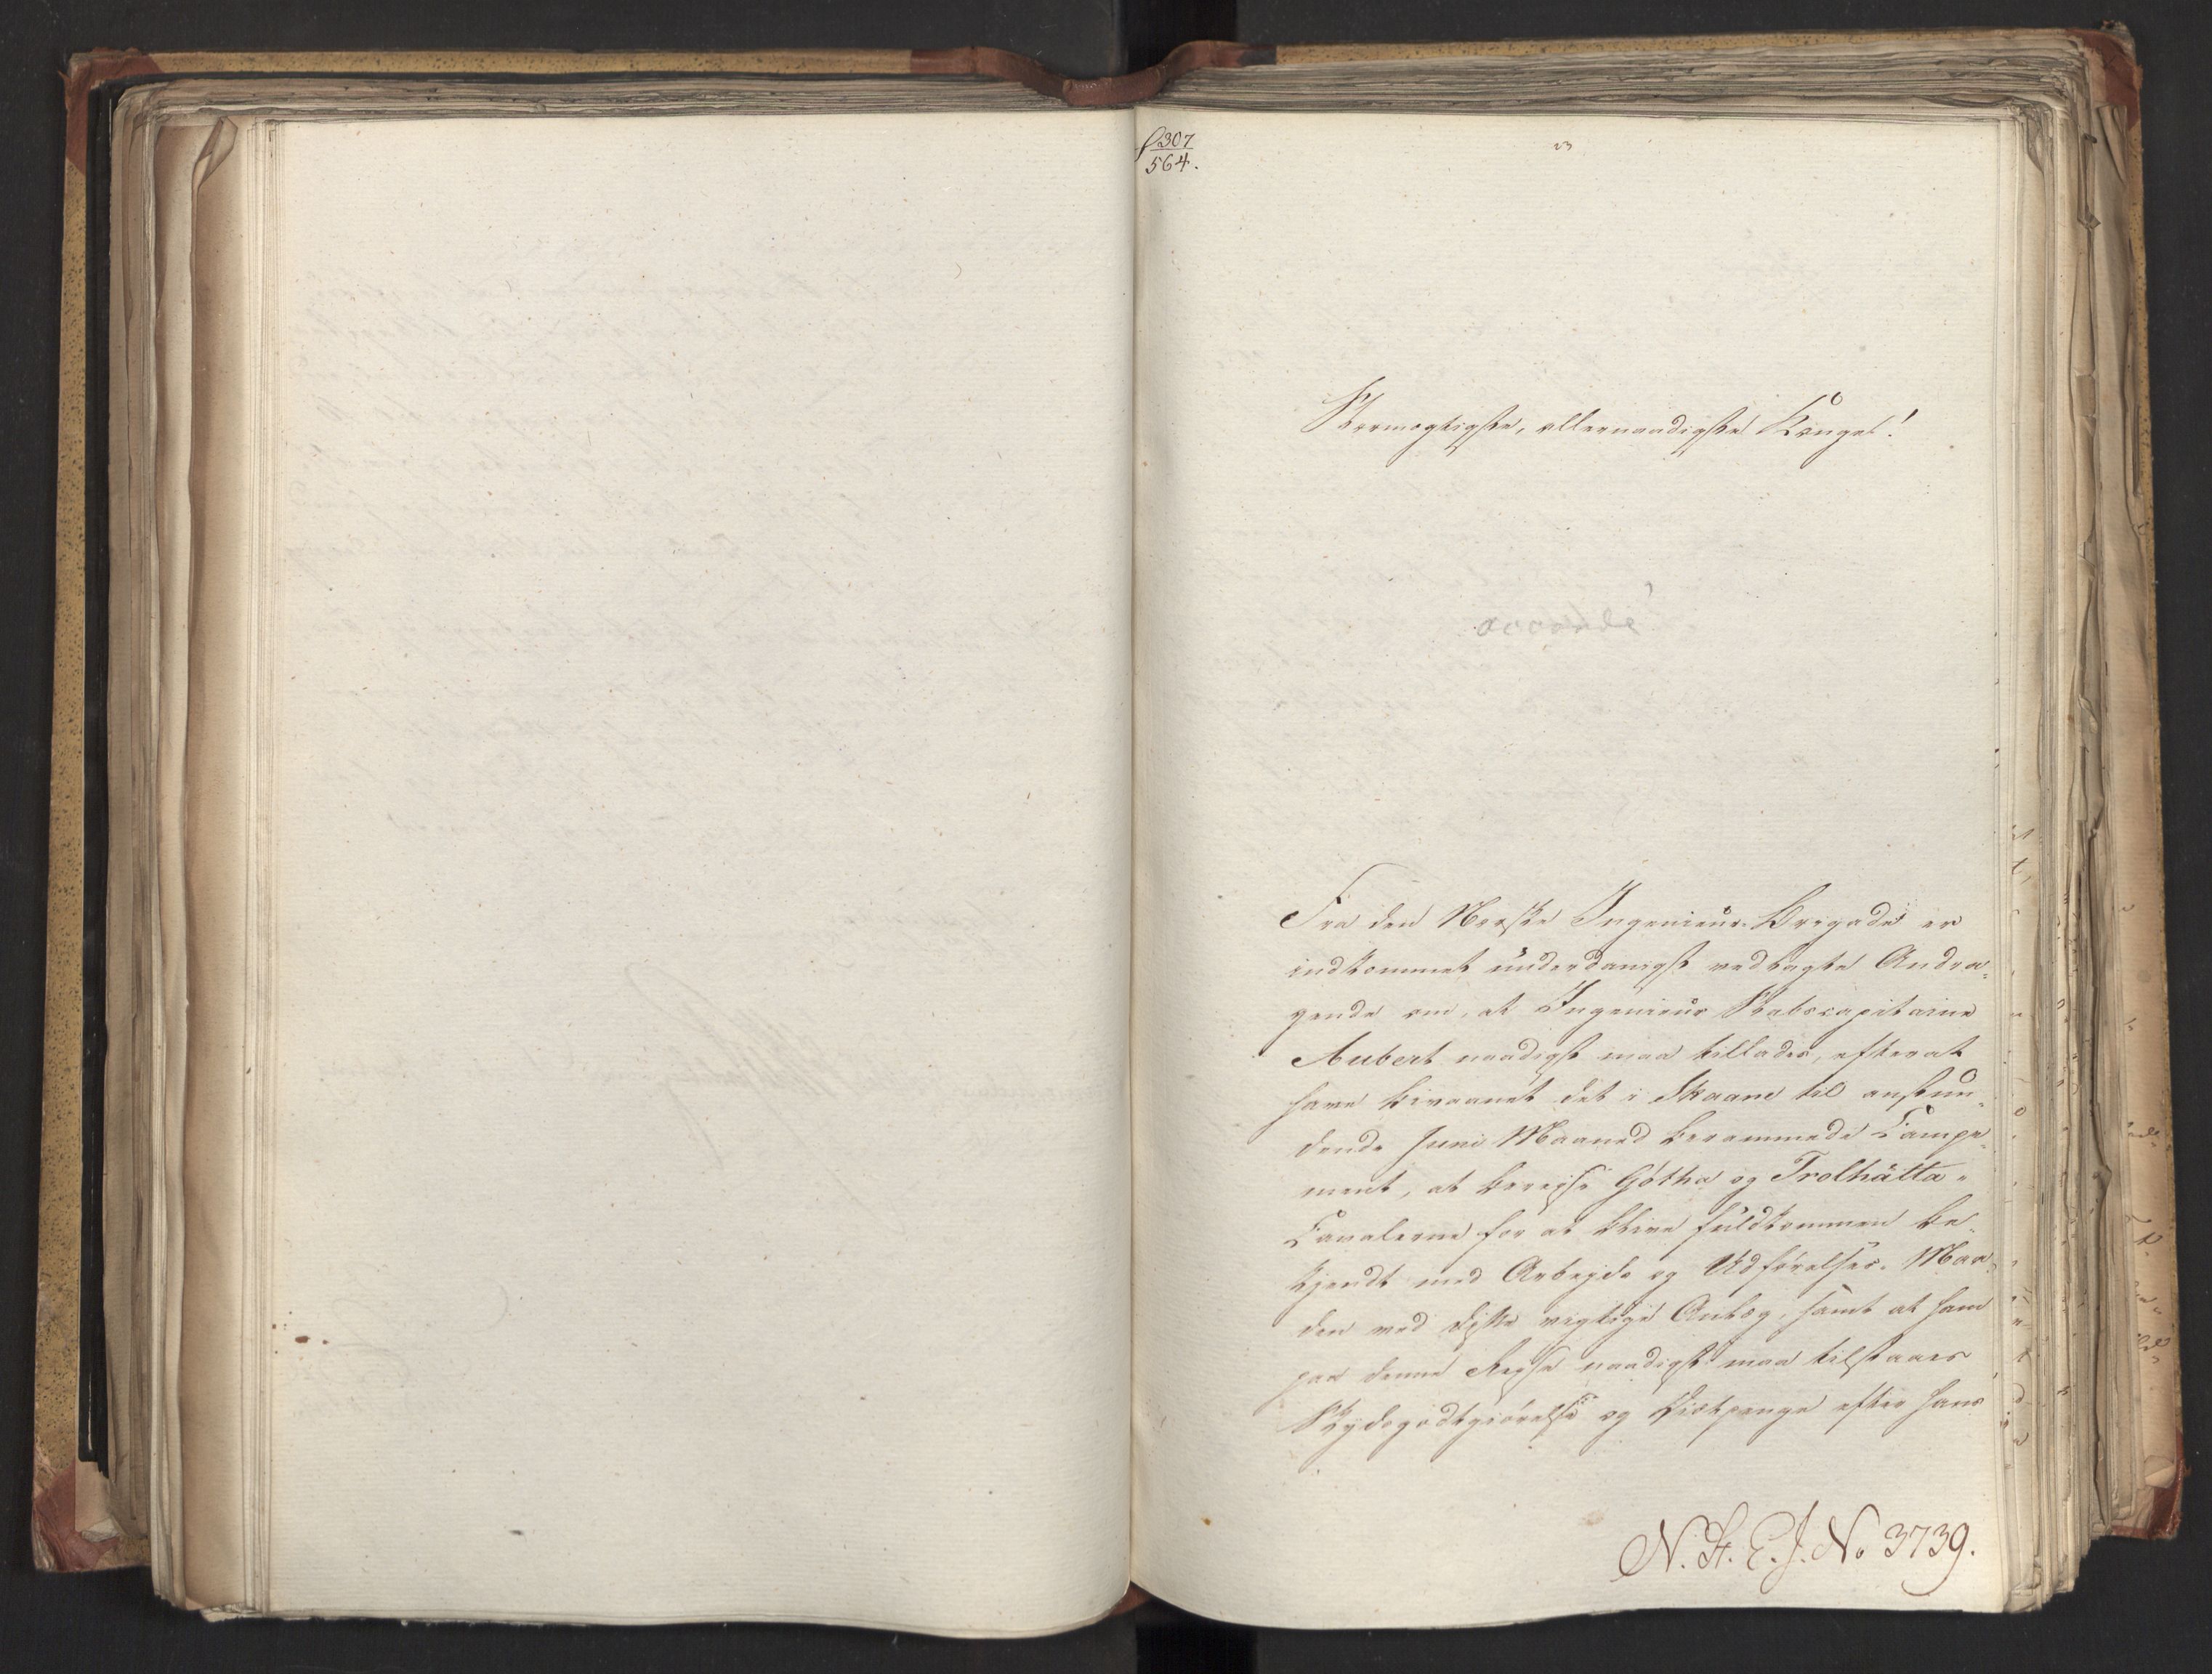 307
564.
Stormægtigste, allernaadigste Konge!
Fra den Norske Ingenieur-Brigade er
indkommet underdanigst vedlagte Andra-
gende om, at Ingenieur Stabscapitaine
Aubert naadigst maa tillades, efter at
have bivaanet det i Skaane til anstun-
dende Juni Maaned berammede Campe-
ment, at bereise Götha og Trolhätta-
Canalerne for at blive fuldkommen be-
kjendt med Arbejds og Udførelses-Maa-
den ved disse vigtige Anlæg, samt at ham
paa denne Rejse naadigst maa tilstaaes
Skydsgodtgiørelse og Diætpenge efter hans
N. St. E. J. No 3739.